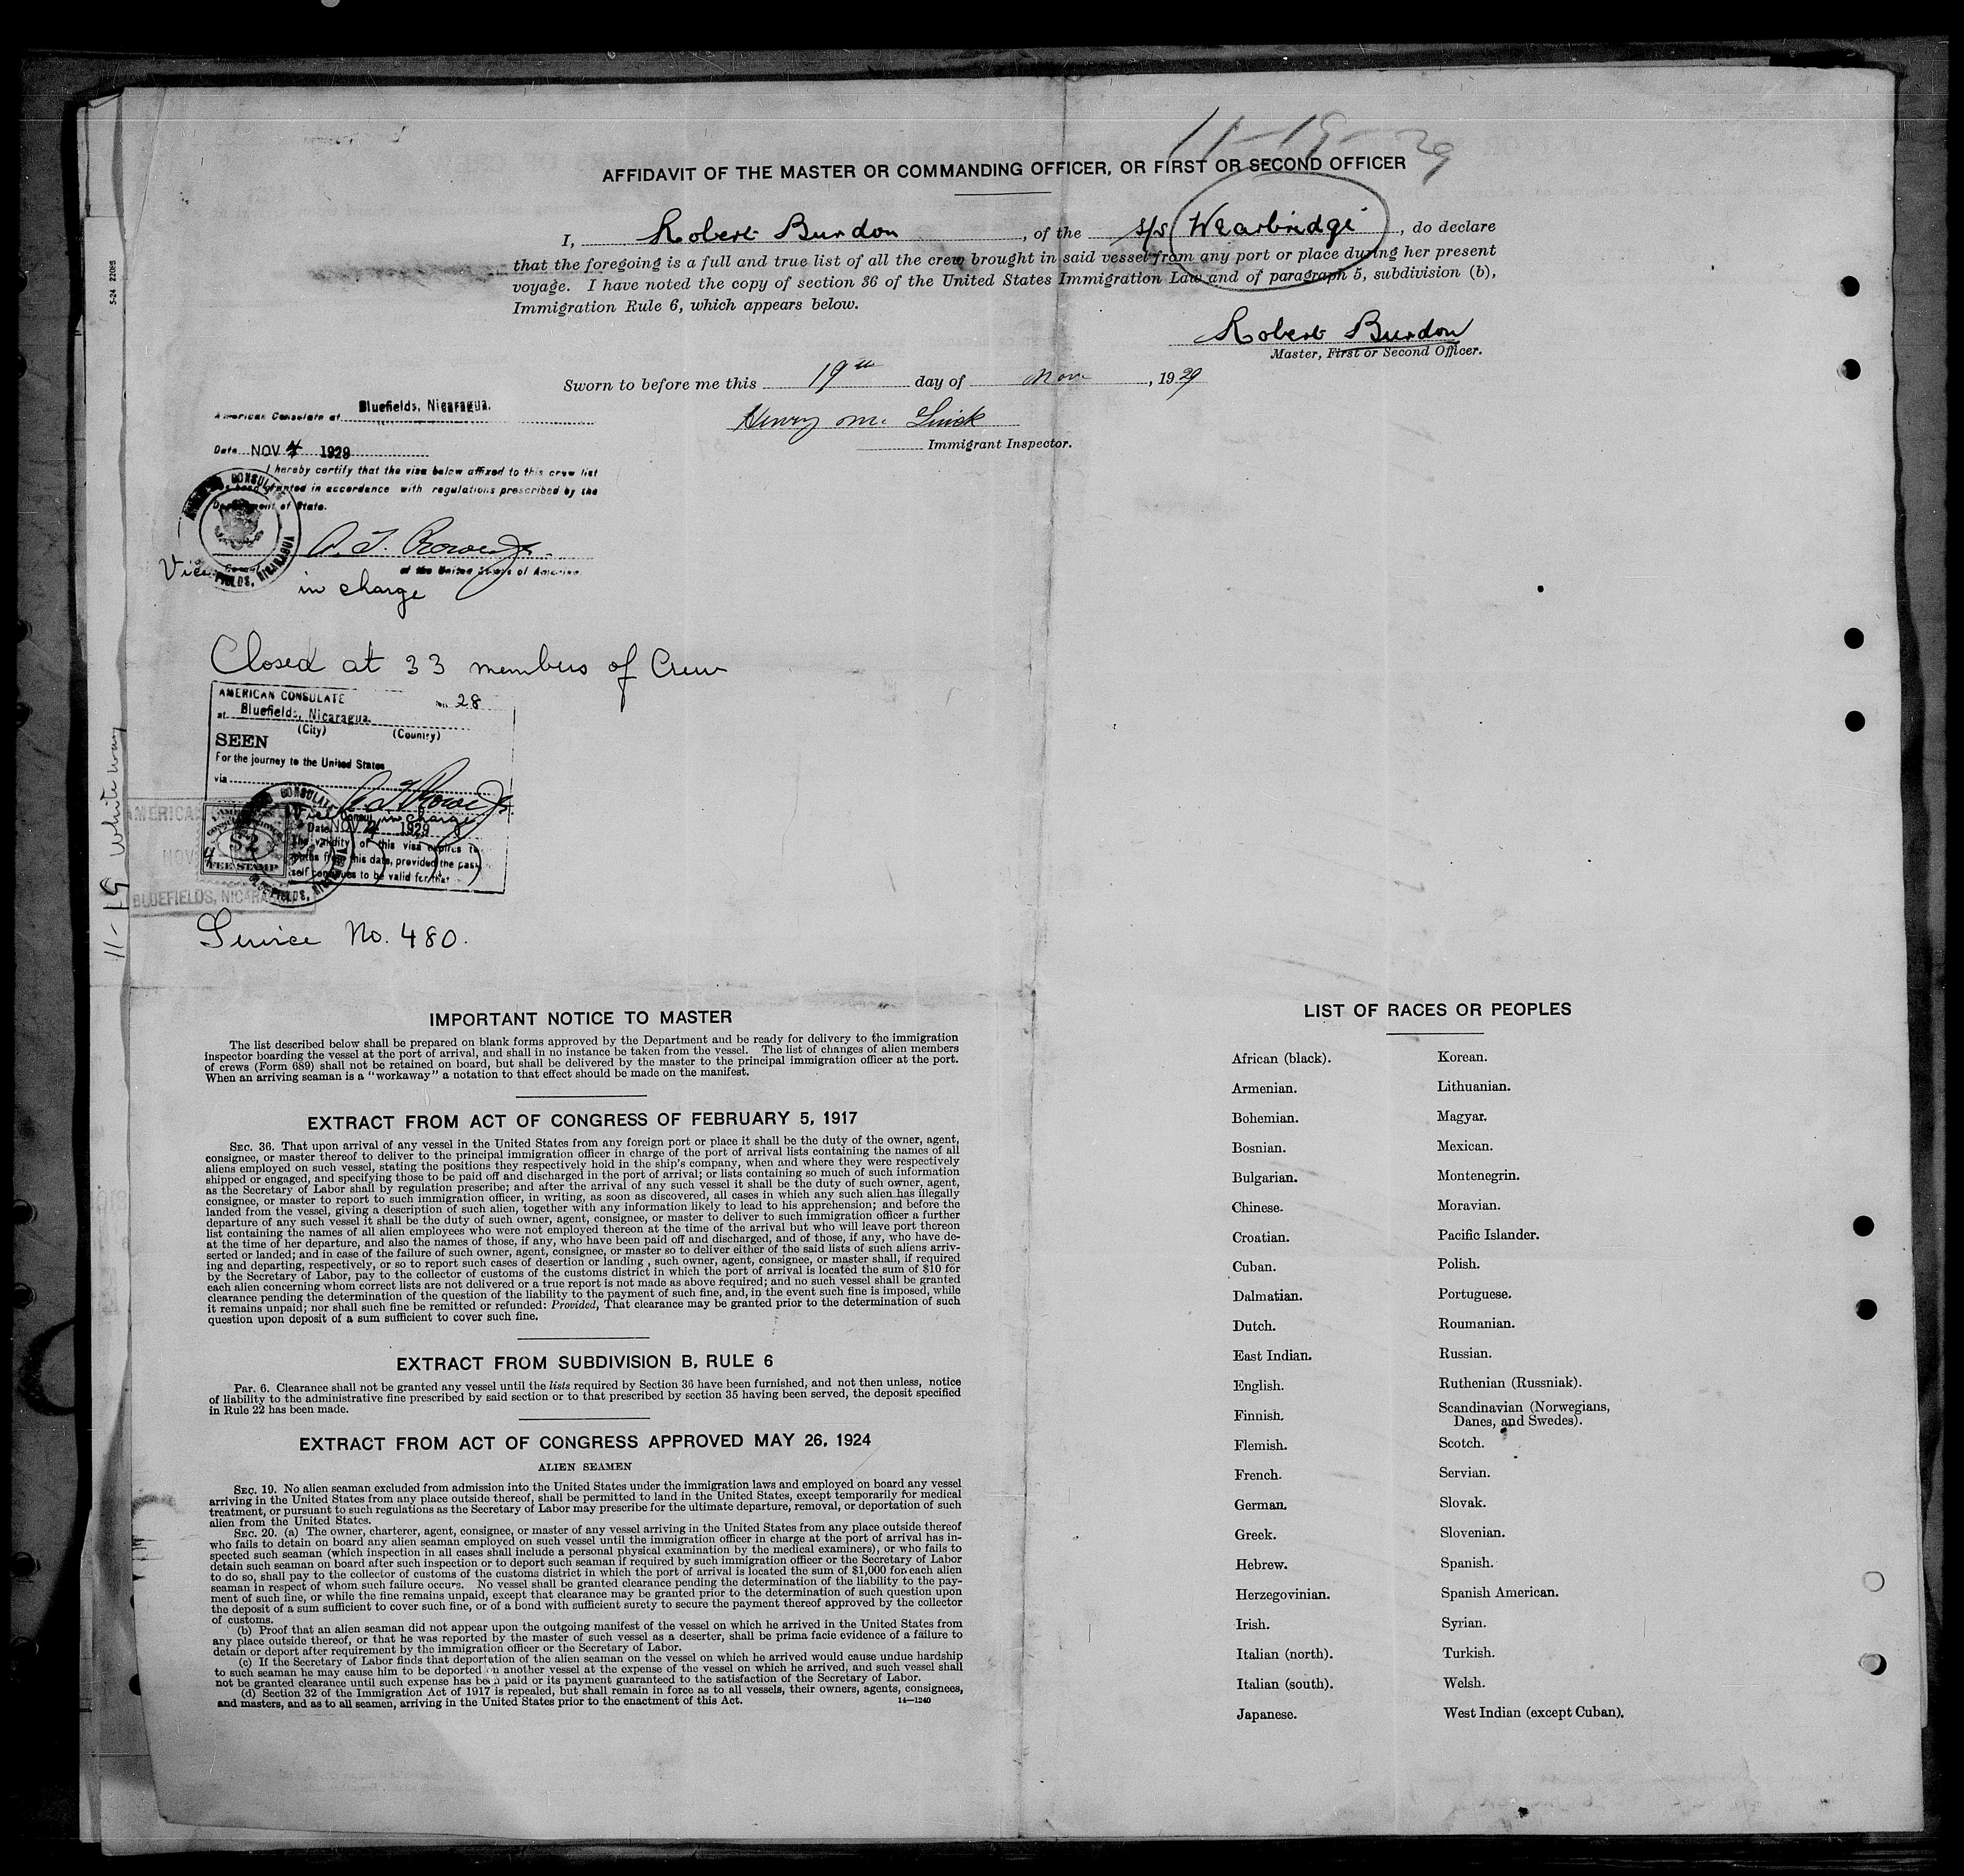 11-19-29
AFFIDAVIT OF THE MASTER OR COMMANDING OFFICER, OR FIRST OR SECOND OFFICER
I, Robert Burdon, of the s/s Wearbridge, do declare
that the foregoing is a full and true list of all the crew brought in said vessel from any port or place during her present
voyage. I have noted the copy of section 36 of the United States Immigration Law and of paragraph 5, subdivision (b),
Immigration Rule 6, which appears below.
Robert Burdon
Master, First or Second Officer.
Sworn to before me this 19th day of Nov, 1929
Henry M.
Immigrant Inspector.
American Consulate at Bluefields, Nicaragua.
Date NOV 4 1929
I hereby certify that the visa below affixed to this crew list
granted in accordance with regulations prescribed by the
Department of State.
Vice
of the United States of America
in charge
Closed at 33 members of Crew
AMERICAN CONSULATE No. 28
at Bluefields, Nicaragua.
(City) (Country)
SEEN
For the journey to the United States
via
Vice Consul in charge
Date NOV 4 1929
The validity of this visa expires
this date, provided the
continues to be valid for that
$2
FEE STAMP
BLUEFIELDS, NICARAGUA
Service No. 480.
11-19 Whiteway
5-24 2208S
IMPORTANT NOTICE TO MASTER
The list described below shall be prepared on blank forms approved by the Department and be ready for delivery to the immigration
inspector boarding the vessel at the port of arrival, and shall in no instance be taken from the vessel. The list of changes of alien members
of crews (Form 689) shall not be retained on board, but shall be delivered by the master to the principal immigration officer at the port.
When an arriving seaman is a "workaway" a notation to that effect should be made on the manifest.
EXTRACT FROM ACT OF CONGRESS OF FEBRUARY 5, 1917
SEC. 36. That upon arrival of any vessel in the United States from any foreign port or place it shall be the duty of the owner, agent,
consignee, or master thereof to deliver to the principal immigration officer in charge of the port of arrival lists containing the names of all
aliens employed on such vessel, stating the positions they respectively hold in the ship's company, when and where they were respectively
shipped or engaged, and specifying those to be paid off and discharged in the port of arrival; or lists containing so much of such information
as the Secretary of Labor shall by regulation prescribe; and after the arrival of any such vessel it shall be the duty of such owner, agent,
consignee, or master to report to such immigration officer, in writing, as soon as discovered, all cases in which any such alien has illegally
landed from the vessel, giving a description of such alien, together with any information likely to lead to his apprehension; and before the
departure of any such vessel it shall be the duty of such owner, agent, consignee, or master to deliver to such immigration officer a further
list containing the names of all alien employees who were not employed thereon at the time of the arrival but who will leave port thereon
at the time of her departure, and also the names of those, if any, who have been paid off and discharged, and of those, if any, who have de-
serted or landed; and in case of the failure of such owner, agent, consignee, or master so to deliver either of the said lists of such aliens arriv-
ing and departing, respectively, or so to report such cases of desertion or landing, such owner, agent, consignee, or master shall, if required
by the Secretary of Labor, pay to the collector of customs of the customs district in which the port of arrival is located the sum of $10 for
each alien concerning whom correct lists are not delivered or a true report is not made as above required; and no such vessel shall be granted
clearance pending the determination of the question of the liability to the payment of such fine, and, in the event such fine is imposed, while
it remains unpaid; nor shall such fine be remitted or refunded: Provided, That clearance may be granted prior to the determination of such
question upon deposit of a sum sufficient to cover such fine.
EXTRACT FROM SUBDIVISION B, RULE 6
Par. 6. Clearance shall not be granted any vessel until the lists required by Section 36 have been furnished, and not then unless, notice
of liability to the administrative fine prescribed by said section or to that prescribed by section 35 having been served, the deposit specified
in Rule 22 has been made.
EXTRACT FROM ACT OF CONGRESS APPROVED MAY 26, 1924
ALIEN SEAMEN
SEC. 19. No alien seaman excluded from admission into the United States under the immigration laws and employed on board any vessel
arriving in the United States from any place outside thereof, shall be permitted to land in the United States, except temporarily for medical
treatment, or pursuant to such regulations as the Secretary of Labor may prescribe for the ultimate departure, removal, or deportation of such
alien from the United States.
SEC. 20. (a) The owner, charterer, agent, consignee, or master of any vessel arriving in the United States from any place outside thereof
who fails to detain on board any alien seaman employed on such vessel until the immigration officer in charge at the port of arrival has in-
spected such seaman (which inspection in all cases shall include a personal physical examination by the medical examiners), or who fails to
detain such seaman on board after such inspection or to deport such seaman if required by such immigration officer or the Secretary of Labor
to do so, shall pay to the collector of customs of the customs district in which the port of arrival is located the sum of $1,000 for each alien
seaman in respect of whom such failure occurs. No vessel shall be granted clearance pending the determination of the liability to the pay-
ment of such fine, or while the fine remains unpaid, except that clearance may be granted prior to the determination of such question upon
the deposit of a sum sufficient to cover such fine, or of a bond with sufficient surety to secure the payment thereof approved by the collector
of customs.
(b) Proof that an alien seaman did not appear upon the outgoing manifest of the vessel on which he arrived in the United States from
any place outside thereof, or that he was reported by the master of such vessel as a deserter, shall be prima facie evidence of a failure to
detain or deport after requirement by the immigration officer or the Secretary of Labor.
(c) If the Secretary of Labor finds that deportation of the alien seaman on the vessel on which he arrived would cause undue hardship
to such seaman he may cause him to be deported on another vessel at the expense of the vessel on which he arrived, and such vessel shall
not be granted clearance until such expense has been paid or its payment guaranteed to the satisfaction of the Secretary of Labor.
(d) Section 32 of the Immigration Act of 1917 is repealed, but shall remain in force as to all vessels, their owners, agents, consignees,
and masters, and as to all seamen, arriving in the United States prior to the enactment of this Act.
14—1240
LIST OF RACES OR PEOPLES
African (black).
Armenian.
Bohemian.
Bosnian.
Bulgarian.
Chinese.
Croatian.
Cuban.
Dalmatian.
Dutch.
East Indian.
English.
Finnish.
Flemish.
French.
German.
Greek.
Hebrew.
Herzegovinian.
Irish.
Italian (north).
Italian (south).
Japanese.
Korean.
Lithuanian.
Magyar.
Mexican.
Montenegrin.
Moravian.
Pacific Islander.
Polish.
Portuguese.
Roumanian.
Russian.
Ruthenian (Russniak).
Scandinavian (Norwegians,
Danes, and Swedes).
Scotch.
Servian.
Slovak.
Slovenian.
Spanish.
Spanish American.
Syrian.
Turkish.
Welsh.
West Indian (except Cuban).